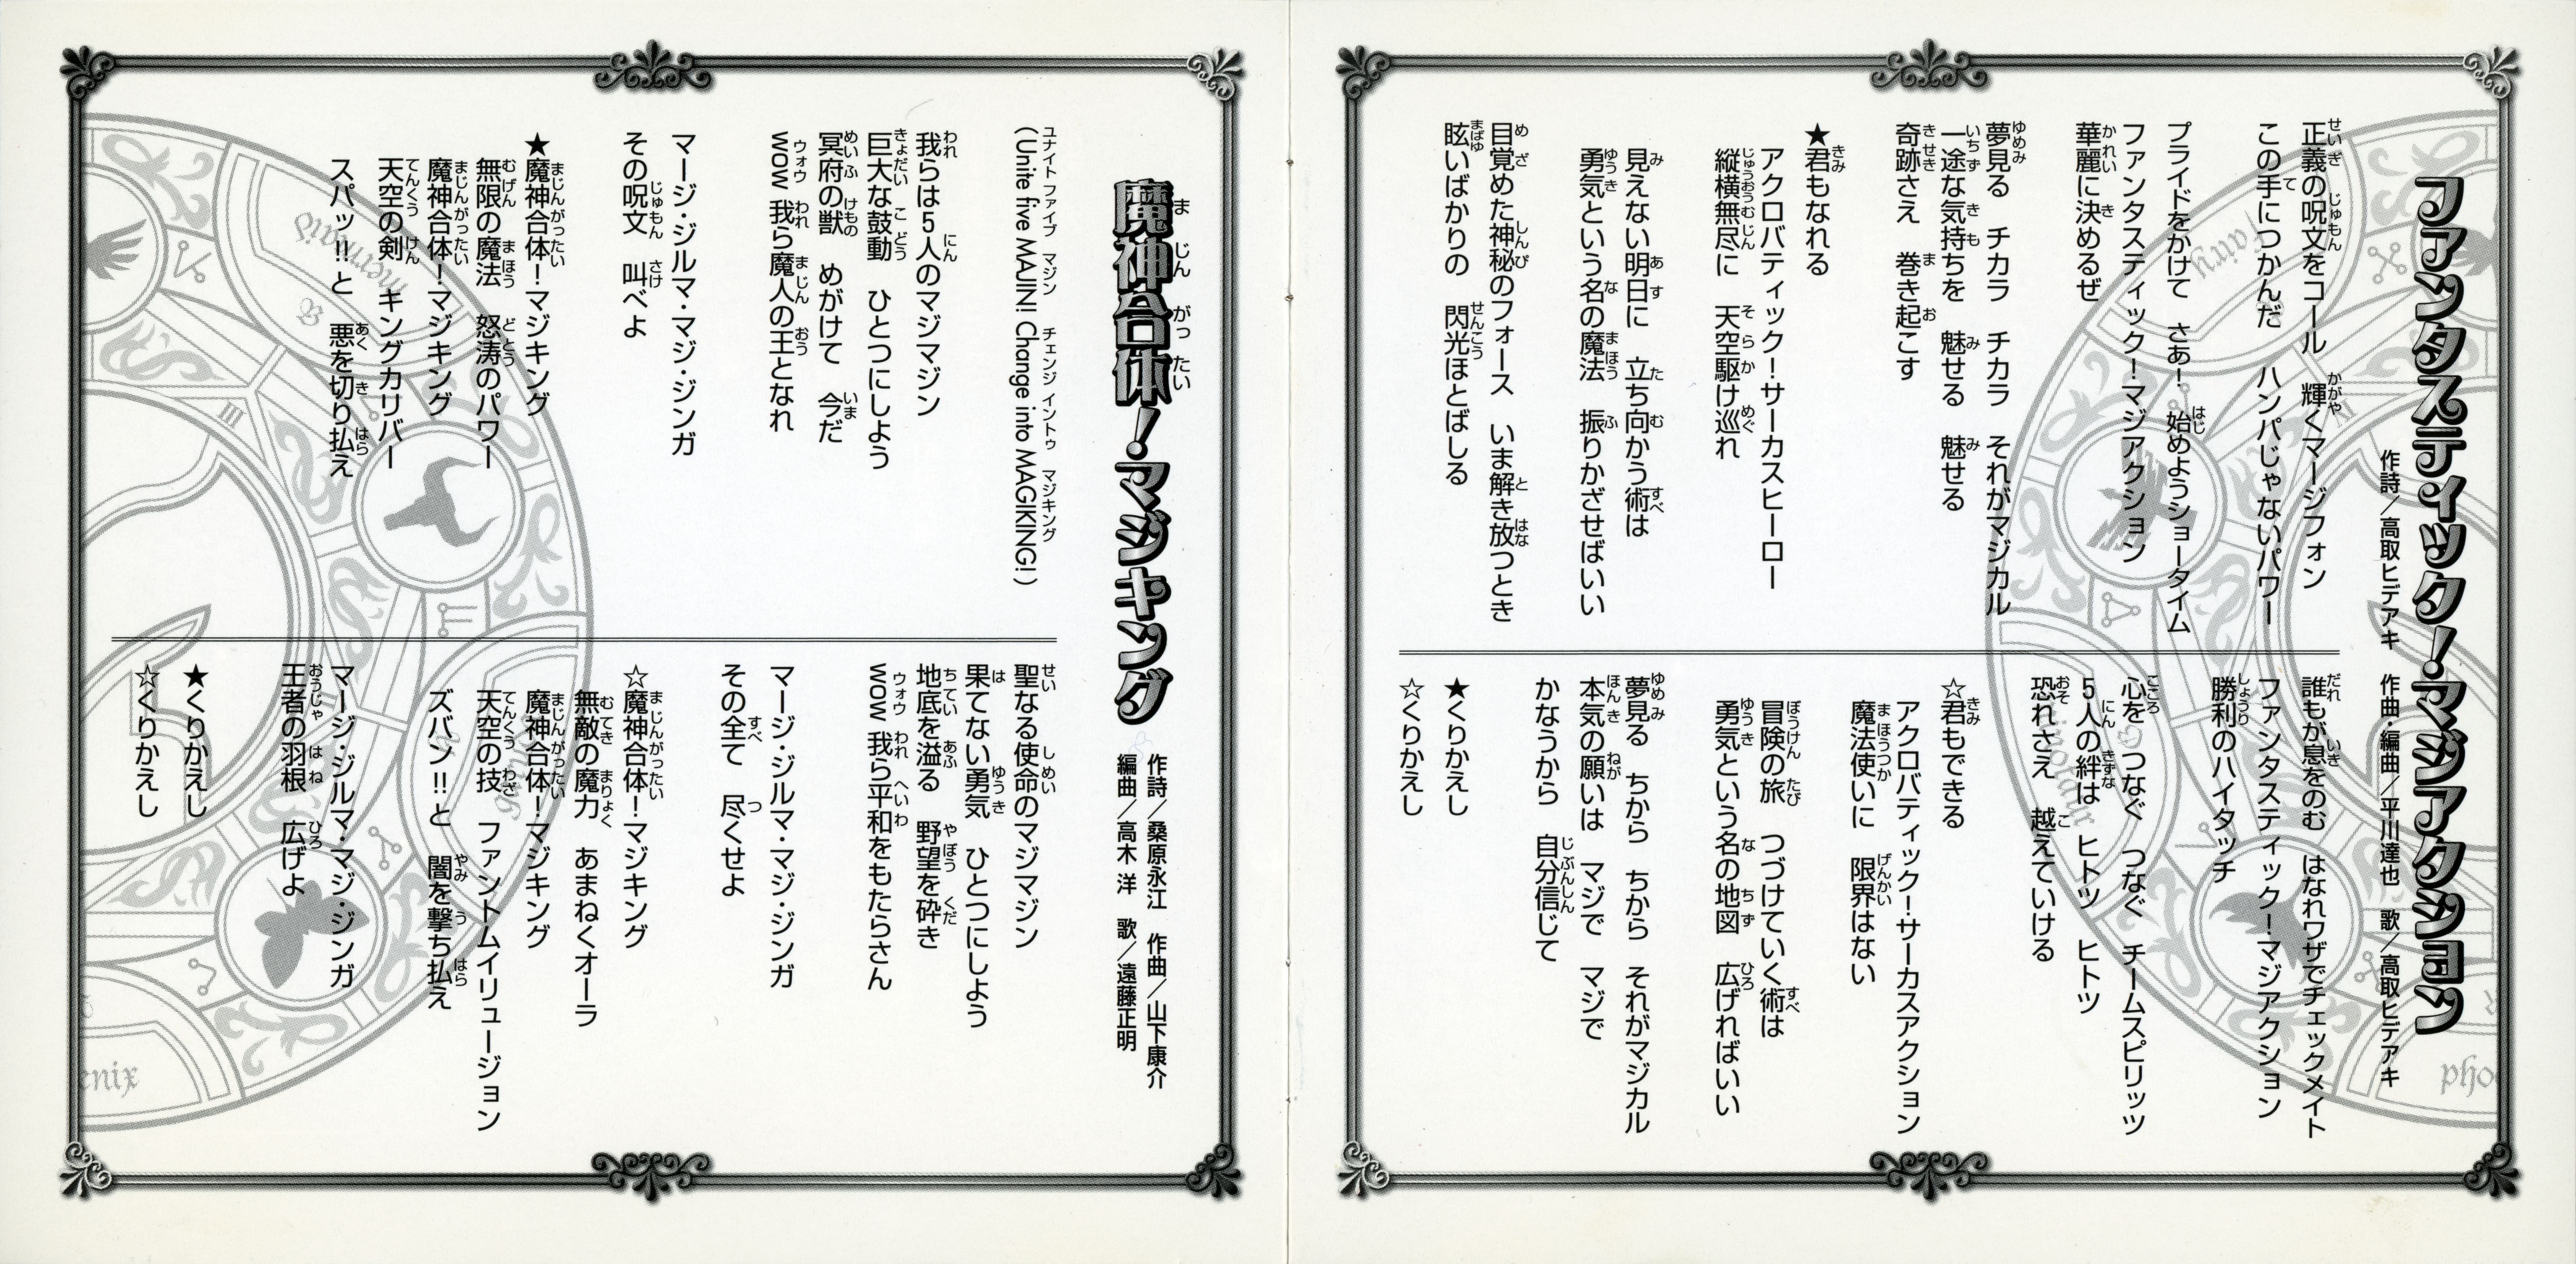 ファンタスティック!マジアクション
作詩/高取ヒデアキ 作曲・編曲/平川達也 歌/高取ヒデアキ
正義の呪文をコール 輝くマージフォン
この手につかんだ ハンパじゃないパワー
プライドをかけて さあ! 始めようショータイム
ファンタスティック!マジアクション
華麗に決めるぜ
夢見る チカラ チカラ それがマジカル
一途な気持ちを 魅せる 魅せる
奇跡さえ 巻き起こす
★君もなれる
アクロバティック!サーカスヒーロー
縦横無尽に 天空駆け巡れ
見えない明日に 立ち向かう術は
勇気という名の魔法 振りかざせばいい
目覚めた神秘のフォース いま解き放つとき
眩いばかりの 閃光ほとばしる
誰もが息をのむ はなれワザでチェックメイト
ファンタスティック!マジアクション
勝利のハイタッチ
心をつなぐ つなぐ チームスピリッツ
5人の絆は ヒトツ ヒトツ
恐れさえ 越えていける
☆君もできる
アクロバティック!サーカスアクション
魔法使いに 限界はない
冒険の旅 つづけていく術は
勇気という名の地図 広げればいい
夢見る ちから ちから それがマジカル
本気の願いは マジで マジで
かなうから 自分信じて
★くりかえし
☆くりかえし
魔神合体!マジキング
作詩/桑原永江 作曲/山下康介
編曲/高木 洋 歌/遠藤正明
(Unite five MAJIN! Change into MAGIKING!)
我らは5人のマジマジン
巨大な鼓動 ひとつにしよう
冥府の獣 めがけて 今だ
WOW 我ら魔人の王となれ
マージ・ジルマ・マジ・ジンガ
その呪文 叫べよ
★魔神合体!マジキング
無限の魔法 怒涛のパワー
魔神合体!マジキング
天空の剣 キングカリバー
スパッ!!と 悪を切り払え
聖なる使命のマジマジン
果てない勇気 ひとつにしよう
地底を溢る 野望を砕き
WOW 我ら平和をもたらさん
マージ・ジルマ・マジ・ジンガ
その全て 尽くせよ
☆魔神合体!マジキング
無敵の魔力 あまねくオーラ
魔神合体!マジキング
天空の技 ファントムイリュージョン
ズバン!!と 闇を撃ち払え
マージ・ジルマ・マジ・ジンガ
王者の羽根 広げよ
★くりかえし
☆くりかえし